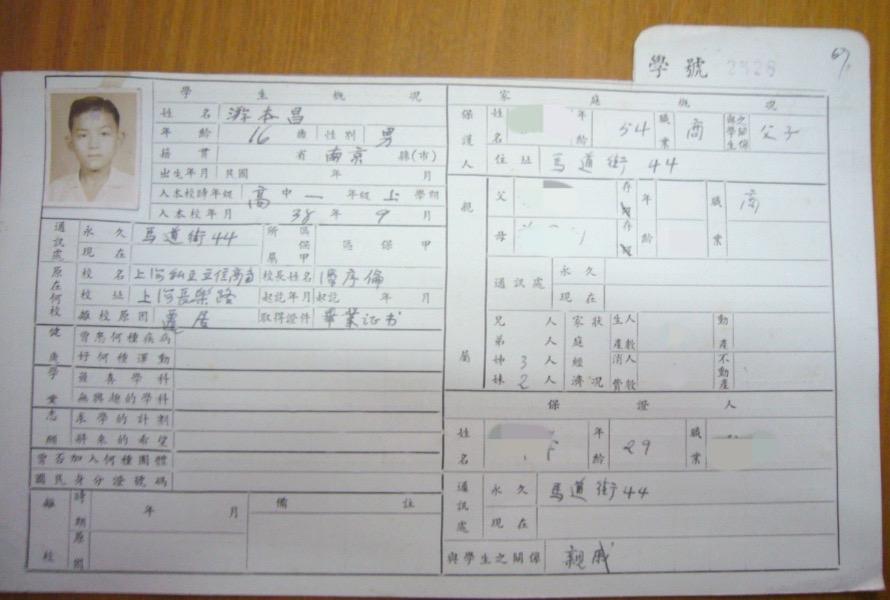 學號 2828
學生概況
姓名 游本昌
年齡 16 歲 性別 男
籍貫 省 南京 縣(市)
出生年月 民國 年 月
入本校時年級 高中一年級上學期
入本校年月 38年9月
通訊處 永久 馬道街44
現在
所屬 區保甲 區保甲
原在何校 校名 上海私立立信高 校長姓名 序倫
校址 上海長樂路 起訖年月 起訖 年 月
離校原因 遷居 取得證件 畢業证书
健康 曾患何種疾病
好何種運動
學業 最喜學科
無興趣的學科
志願 求學的計劃
將來的希望
曾否加入何種團體
國民身分證號碼
離校 時期 年 月
原因
備註
家庭概況
保護人 姓名 年齡 54 職業 商 與學生之關係 父子
住址 馬道街44
親屬 父 存 年 職 商
母 存 齡 業
通訊處 永久
現在
兄 人 家庭經濟狀況 生產 人數 動產
弟 人
姊 3 人 消費 人數 不動產
妹 2 人
保證人
姓名 年齡 29 職業
通訊處 永久 馬道街44
現在
與學生之關係 親戚